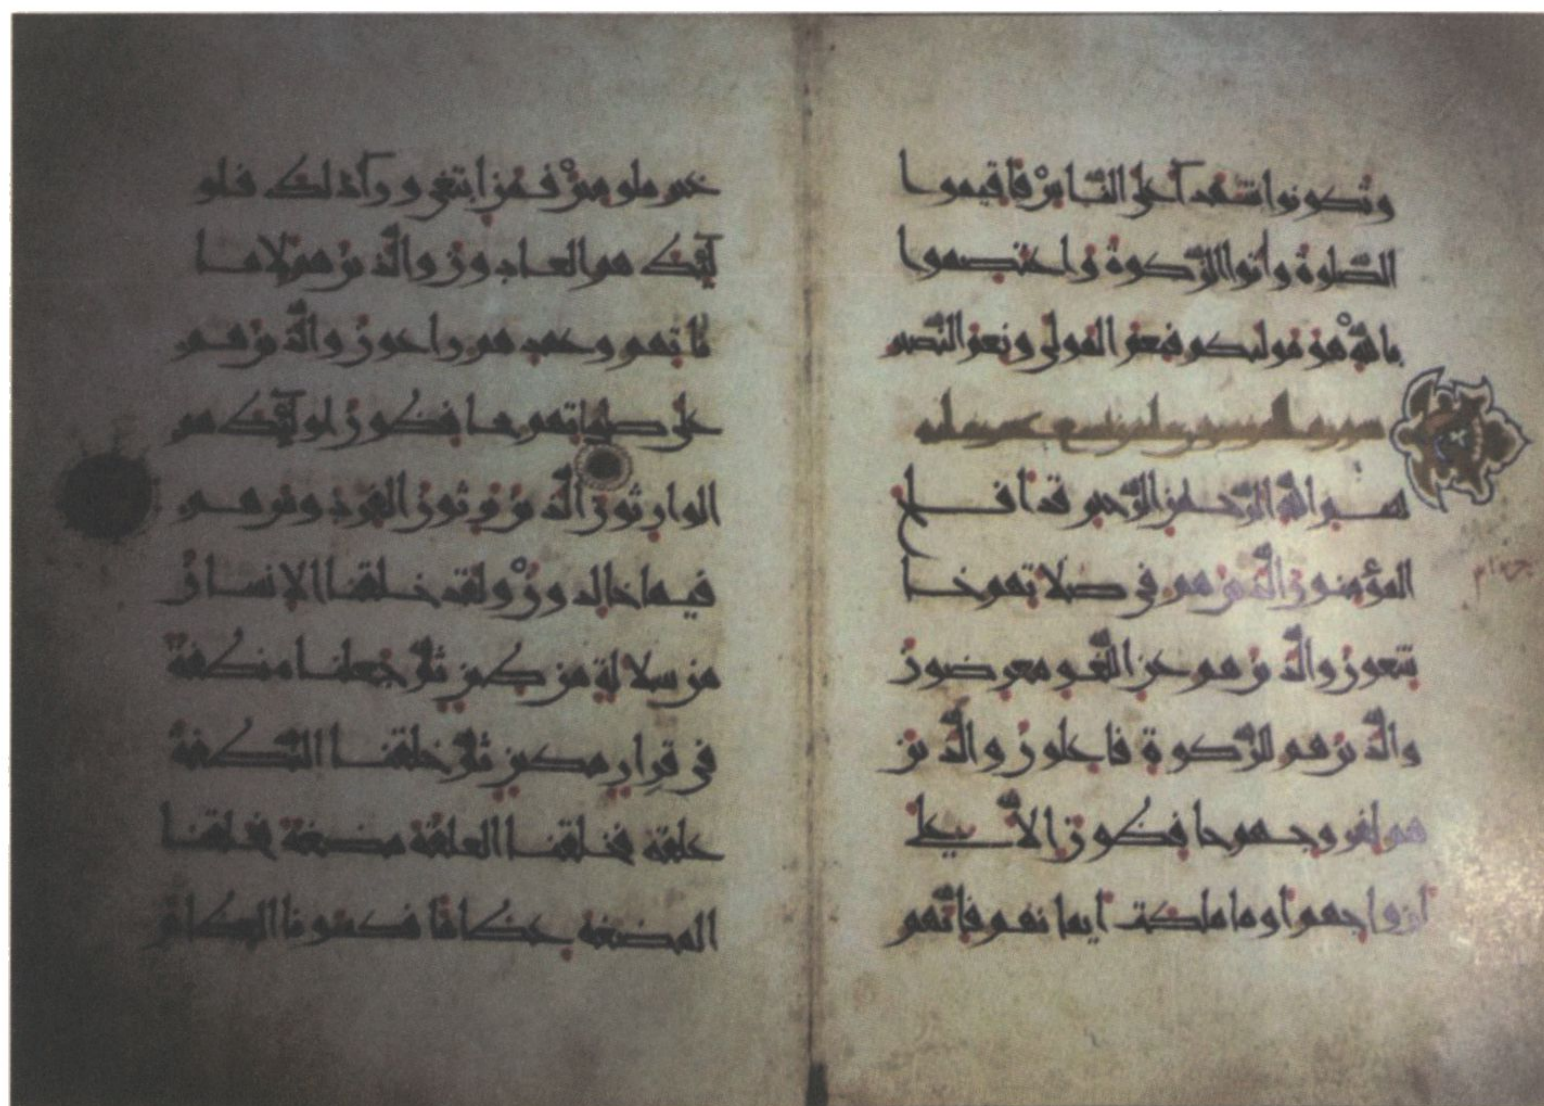 وتكونوا شهدآ على الناس فأقيموا
الصلوة وأتوا الزكوة واعتصموا
بالله هو موليكم فنعم المولى ونعم النصير
بسم الله الرحمن الرحيم قد أفلح
المؤمنون الذين هم في صلاتهم خا
شعون والذين هم عن اللغو معرضون
والذين هم للزكوة فاعلون والذين
هم لفروجهم حافظون إلا على
أزواجهم أو ما ملكت أيمانهم فإنهم
غير ملومين فمن ابتغى ورآ ذلك فأو
لئك هم العادون والذين هم لأما
ناتهم وعهدهم راعون والذين هم
على صلواتهم يحافظون أولئك هم
الوارثون الذين يرثون الفردوس هم
فيها خالدون ولقد خلقنا الإنسان
من سلالة من طين ثم جعلناه نطفة
في قرار مكين ثم خلقنا النطفة
علقة فخلقنا العلقة مضغة فخلقنا
المضغة عظاما فكسونا العظام